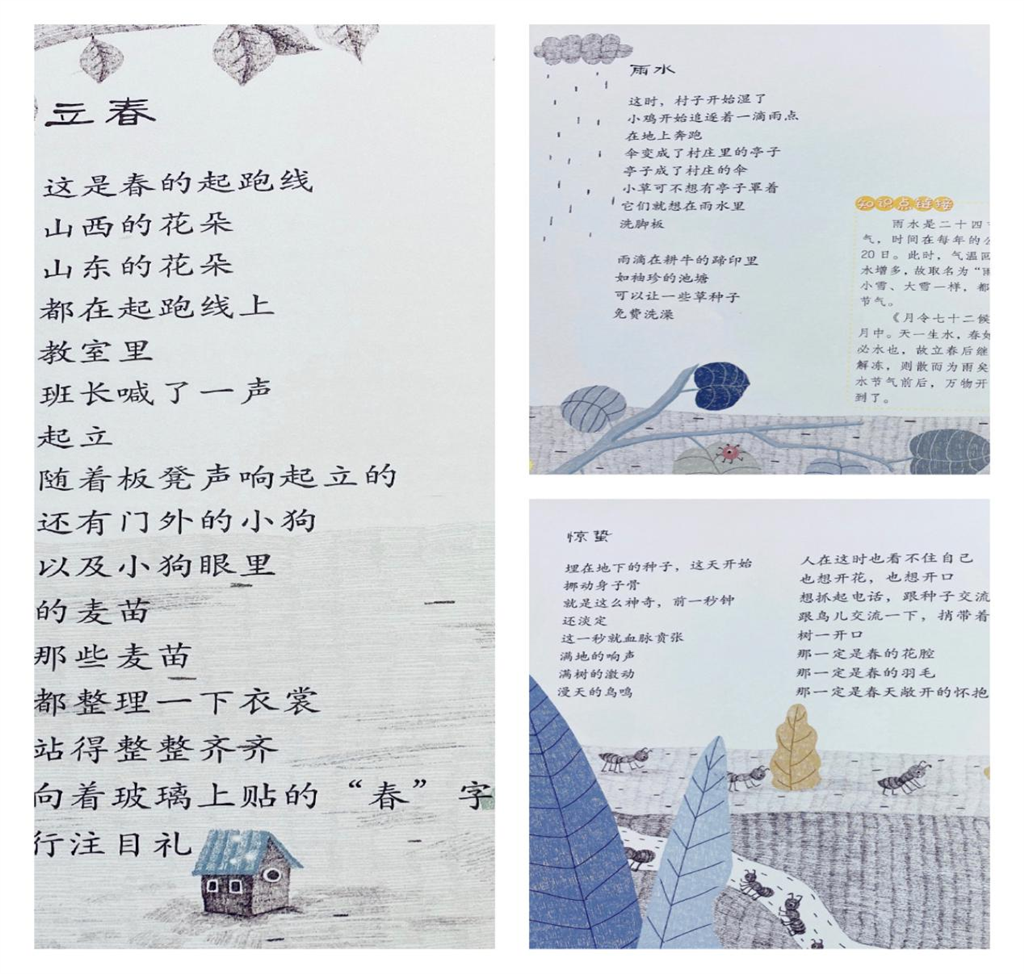 立春
这是春的起跑线
山西的花朵
山东的花朵
都在起跑线上
教室里
班长喊了一声
起立
随着板凳声响起立的
还有门外的小狗
以及小狗眼里
的麦苗
那些麦苗
都整理一下衣裳
站得整整齐齐
向着玻璃上贴的“春”字
行注目礼
雨水
这时，村子开始湿了
小鸡开始追逐着一滴雨点
在地上奔跑
伞变成了村庄里的亭子
亭子成了村庄的伞
小草可不想有亭子罩着
它们就想在雨水里
洗脚板
雨滴在耕牛的蹄印里
如袖珍的池塘
可以让一些草种子
免费洗澡
知识点链接
雨水是二十四
气，时间在每年的公
20日。此时，气温回
水增多，故取名为“雨
小雪、大雪一样，都
节气。
《月令七十二候
月中。天一生水，春始
必水也，故立春后继
解冻，则散而为雨矣
水节气前后，万物开
到了。
惊蛰
埋在地下的种子，这天开始
挪动身子骨
就是这么神奇，前一秒钟
还淡定
这一秒就血脉贲张
满地的响声
满树的激动
漫天的鸟鸣
人在这时也看不住自己
也想开花，也想开口
想抓起电话，跟种子交流
跟鸟儿交流一下，捎带着
树一开口
那一定是春的花腔
那一定是春的羽毛
那一定是春天敞开的怀抱